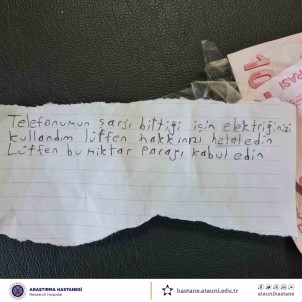 Telefonumun şarjı bittiği için elektriğinizi
kullandım lütfen hakkınızı helal edin
Lütfen bu miktar parayı kabul edin
10
ARAŞTIRMA HASTANESİ
Research Hospital
hastane.atauni.edu.tr
ataunihastanesi